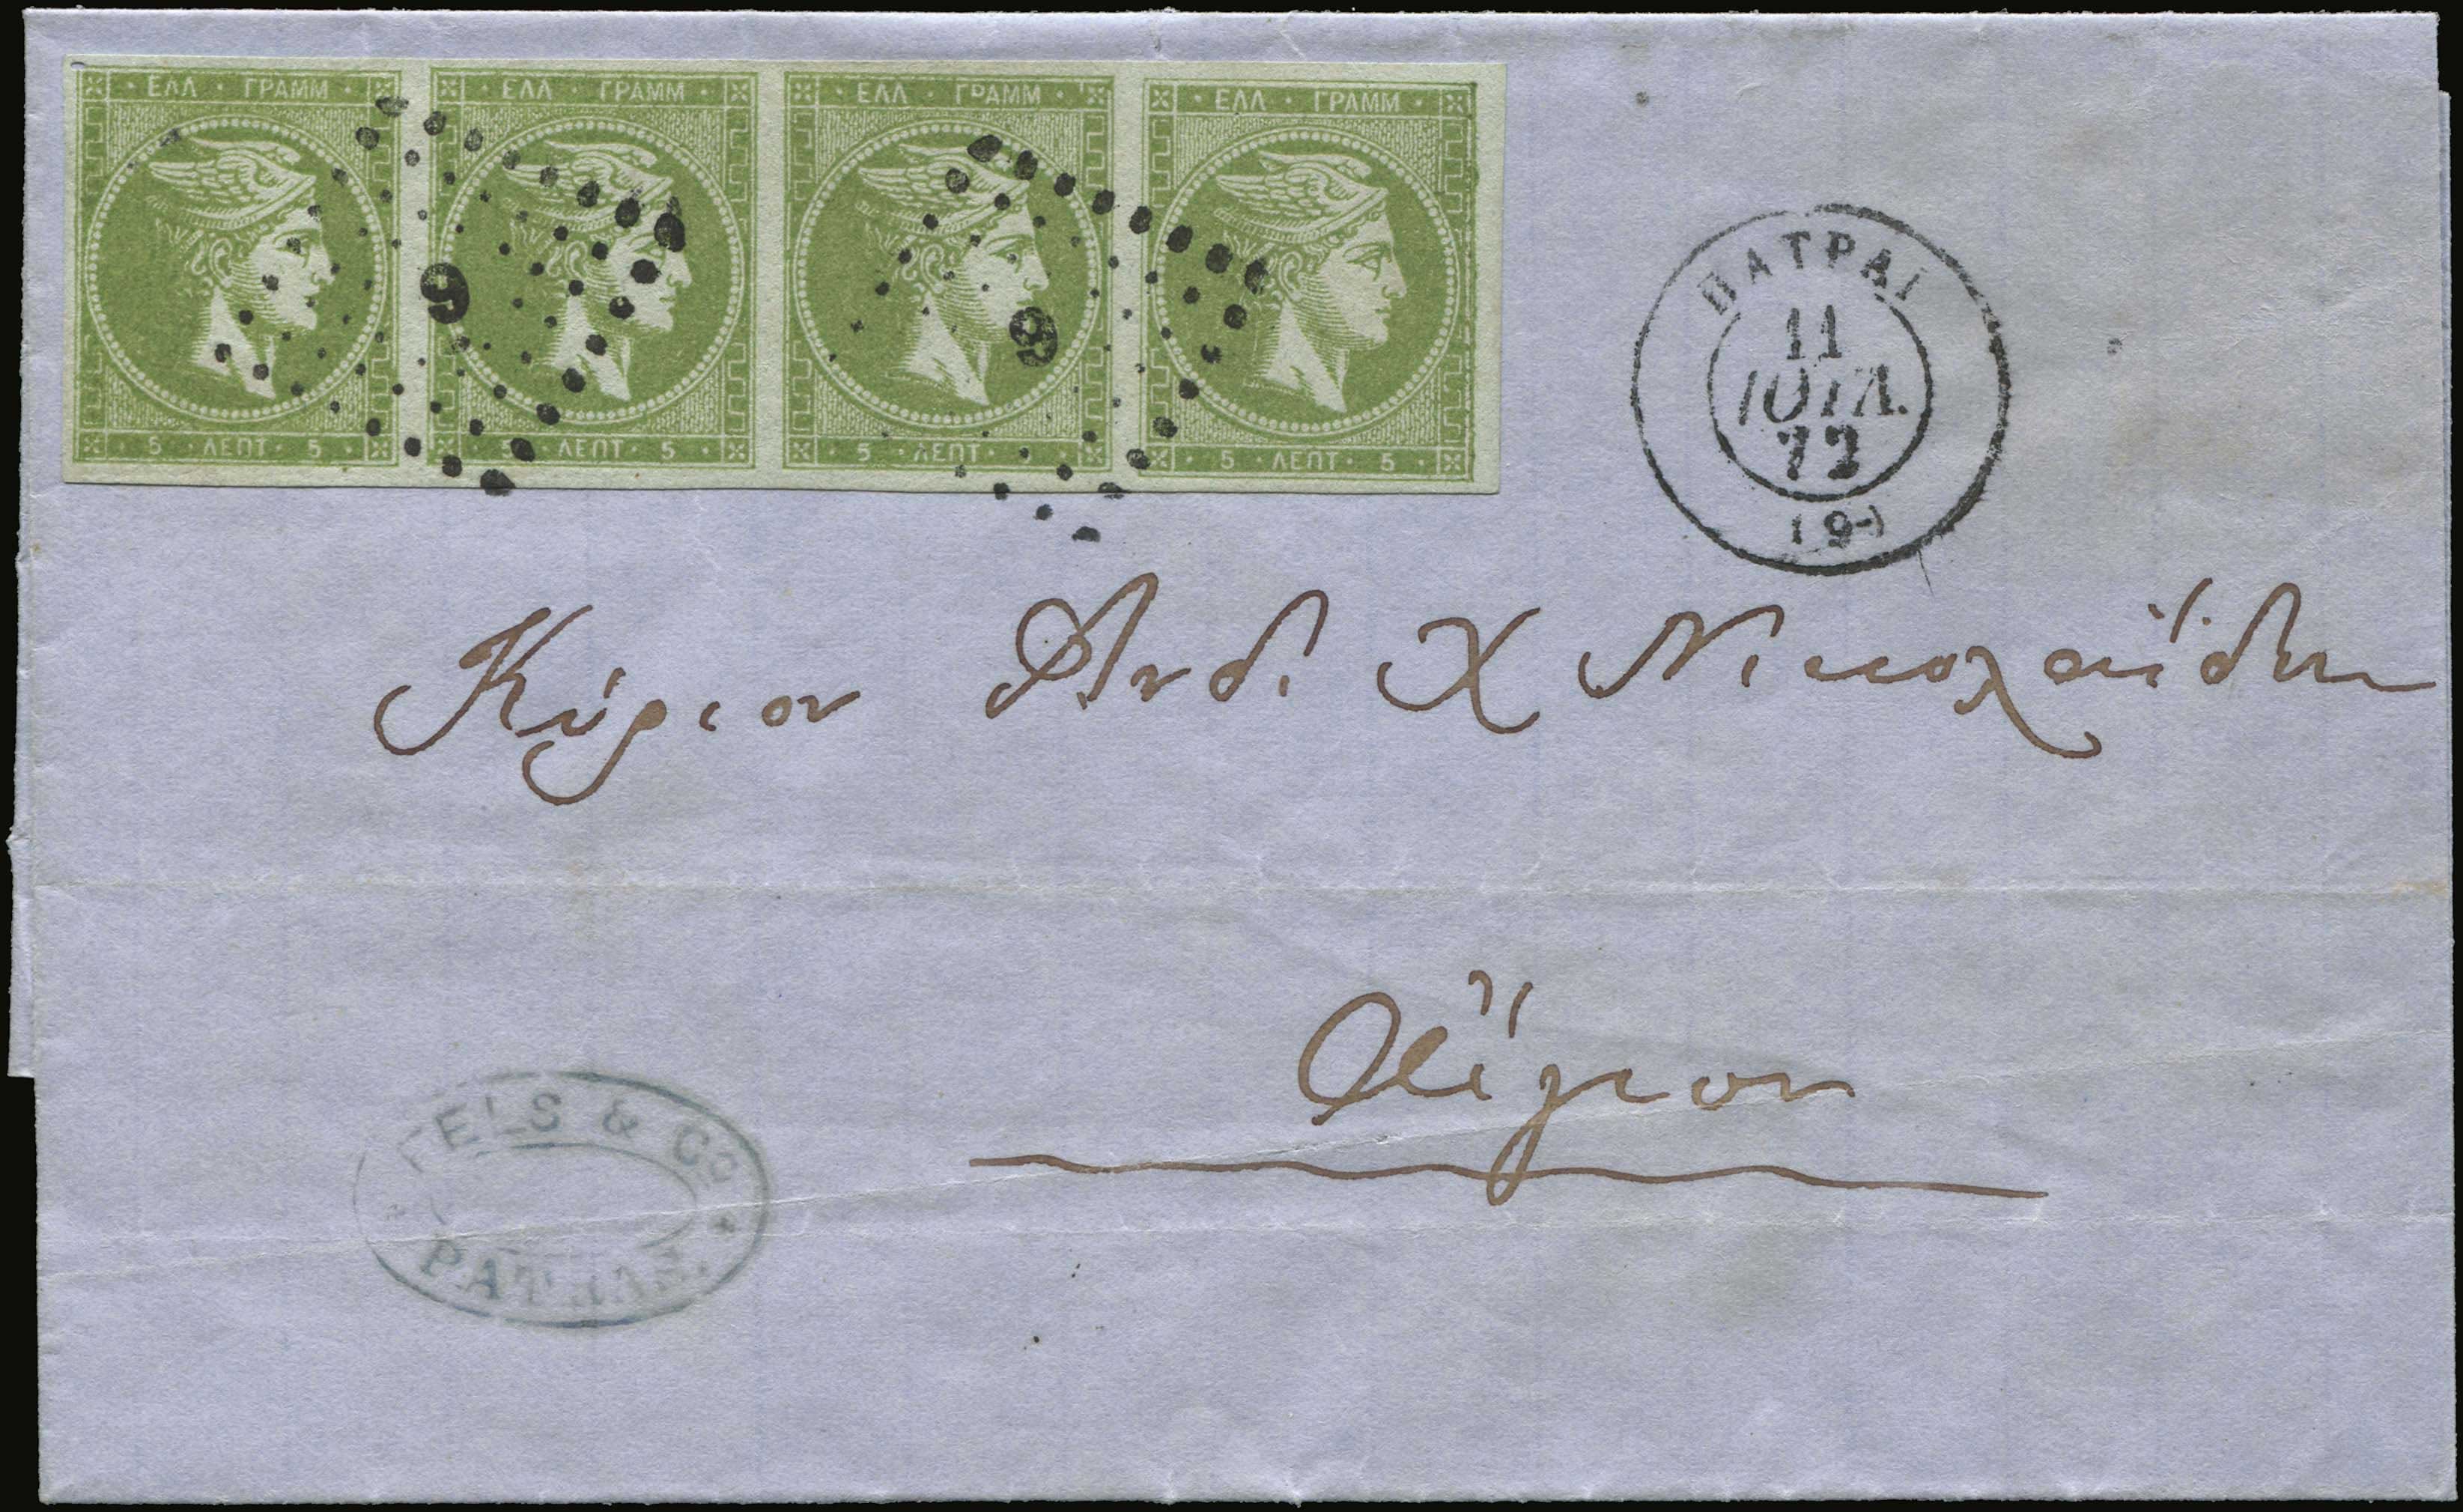 ΕΛΛ · ΓΡΑΜΜ
5 · ΛΕΠΤ · 5
ΕΛΛ · ΓΡΑΜΜ
5 · ΛΕΠΤ · 5
ΕΛΛ · ΓΡΑΜΜ
5 · ΛΕΠΤ ·
ΕΛΛ · ΓΡΑΜΜ
5 · ΛΕΠΤ · 5
9
9
ΠΑΤΡΑΙ
11
ΙΟΥΛ.
72
(9)
Κύριον Ανδ. Χ Νικολαΐδην
Αἴγιον
FELS & Co
PATRAS.